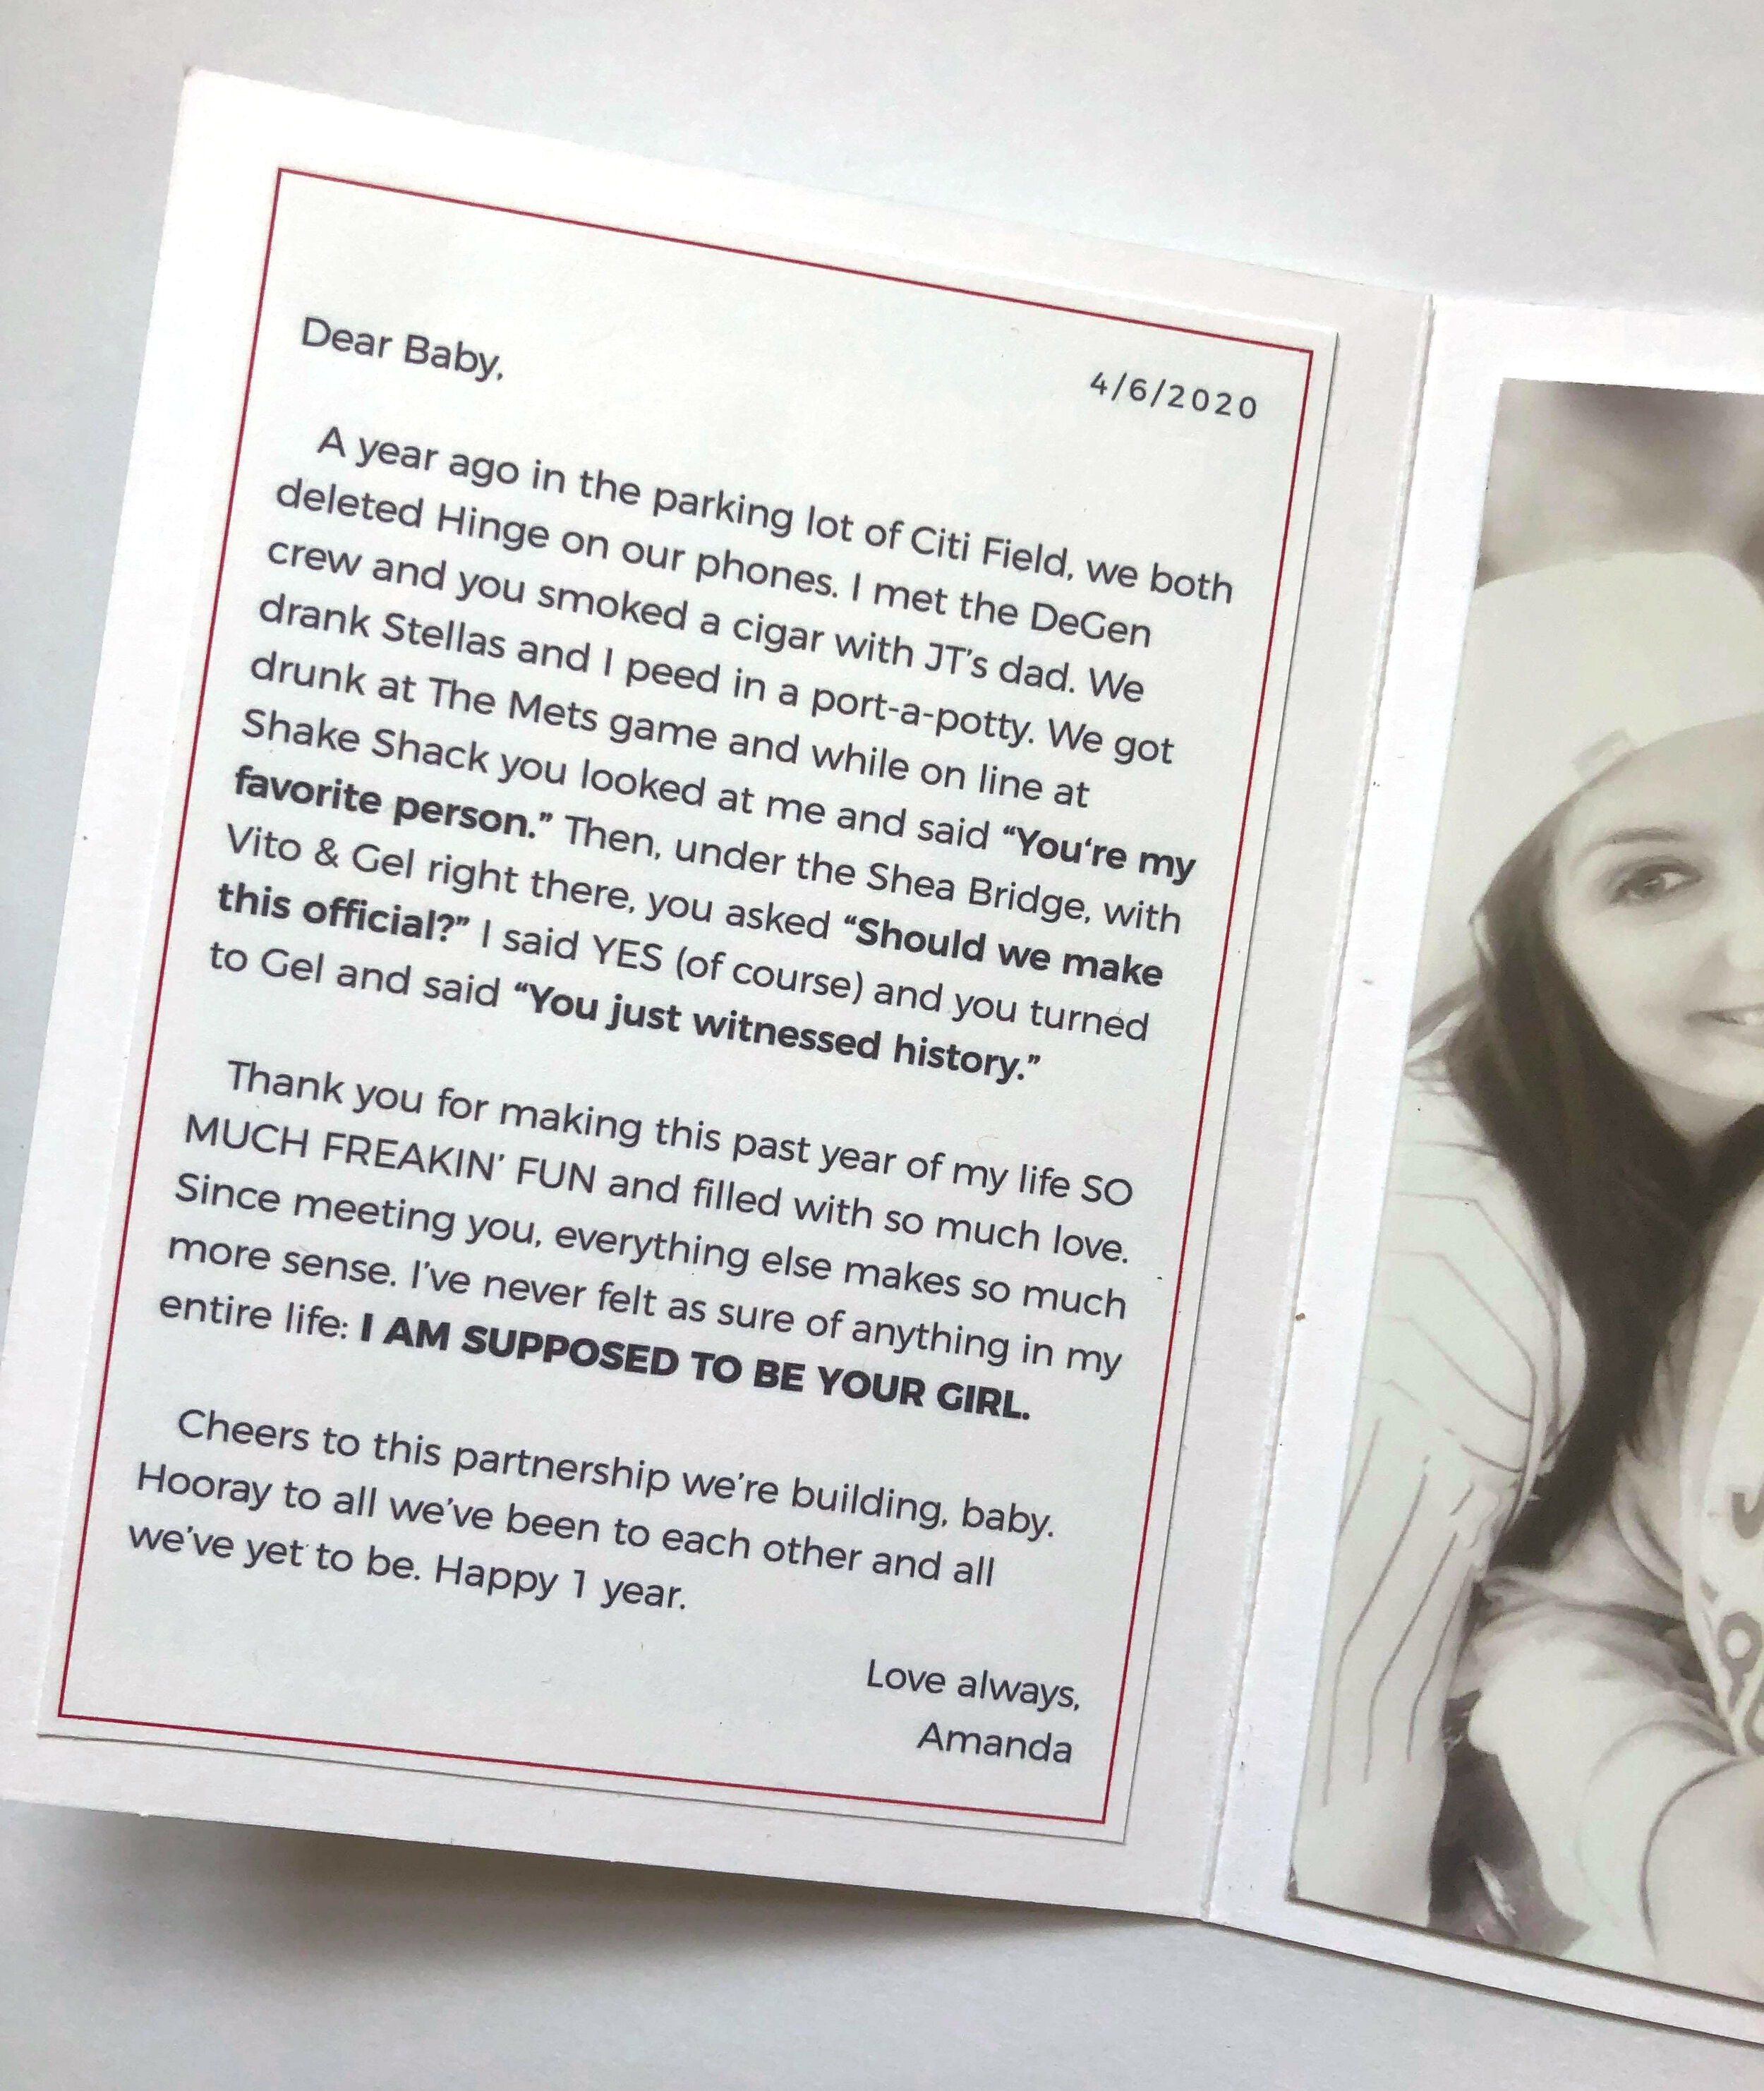 Dear Baby,
4/6/2020
A year ago in the parking lot of Citi Field, we both
deleted Hinge on our phones. I met the DeGen
crew and you smoked a cigar with JT's dad. We
drank Stellas and I peed in a port-a-potty. We got
drunk at The Mets game and while on line at
Shake Shack you looked at me and said “You‘re my
favorite person.” Then, under the Shea Bridge, with
Vito & Gel right there, you asked “Should we make
this official?” I said YES (of course) and you turned
to Gel and said “You just witnessed history.”
Thank you for making this past year of my life SO
MUCH FREAKIN’ FUN and filled with so much love.
Since meeting you, everything else makes so much
more sense. I’ve never felt as sure of anything in my
entire life: I AM SUPPOSED TO BE YOUR GIRL.
Cheers to this partnership we’re building, baby.
Hooray to all we’ve been to each other and all
we’ve yet to be. Happy 1 year.
Love always,
Amanda